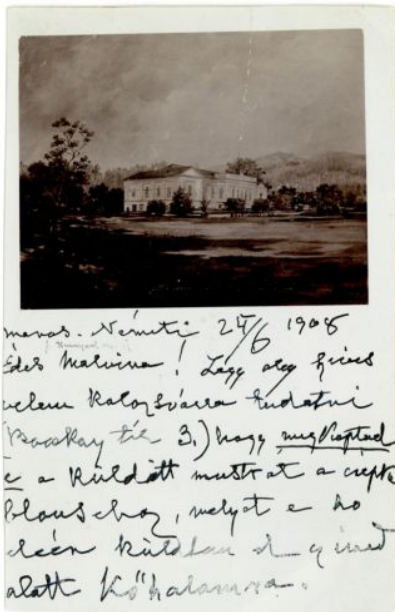 maros-Németi 24/6 1908
Édes Malvina! Légy oly szives
velem Kolozsvárra tudatni
(Bocskay tér 3.) hogy megkaptad
e a küldött mustrát a csipke
blousehoz, melyet e hó
elején küldtem
alatt Kőhalomra.